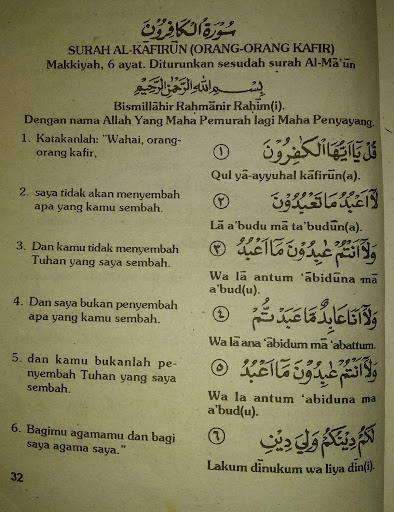 سُوْرَةُ الْكَافِرُوْنَ
SURAH AL-KĀFIRŪN (ORANG-ORANG KAFIR)
Makkiyah, 6 ayat. Diturunkan sesudah surah Al-Mā'ūn
بِسْمِ اللهِ الرَّحْمٰنِ الرَّحِيْمِ
Bismillāhir Raḥmānir Raḥīm(i).
Dengan nama Allah Yang Maha Pemurah lagi Maha Penyayang.
1. Katakanlah: "Wahai, orang-
orang kafir,
قُلْ يٰٓاَيُّهَا الْكٰفِرُوْنَ ١
Qul yā-ayyuhal kāfirūn(a).
2. saya tidak akan menyembah
apa yang kamu sembah.
لَآ اَعْبُدُ مَا تَعْبُدُوْنَ ٢
Lā a'budu mā ta'budūn(a).
3. Dan kamu tidak menyembah
Tuhan yang saya sembah.
وَلَآ اَنْتُمْ عٰبِدُوْنَ مَآ اَعْبُدُ ٣
Wa lā antum 'ābidūna mā
a'bud(u).
4. Dan saya bukan penyembah
apa yang kamu sembah.
وَلَآ اَنَا۠ عَابِدٌ مَّا عَبَدْتُّمْ ٤
Wa lā ana 'ābidum mā 'abattum.
5. dan kamu bukanlah pe-
nyembah Tuhan yang saya
sembah.
وَلَآ اَنْتُمْ عٰبِدُوْنَ مَآ اَعْبُدُ ٥
Wa lā antum 'ābiduna ma
a'bud(u).
6. Bagimu agamamu dan bagi
saya agama saya."
لَكُمْ دِيْنُكُمْ وَلِيَ دِيْنِ ٦
Lakum dīnukum wa liya dīn(i).
32